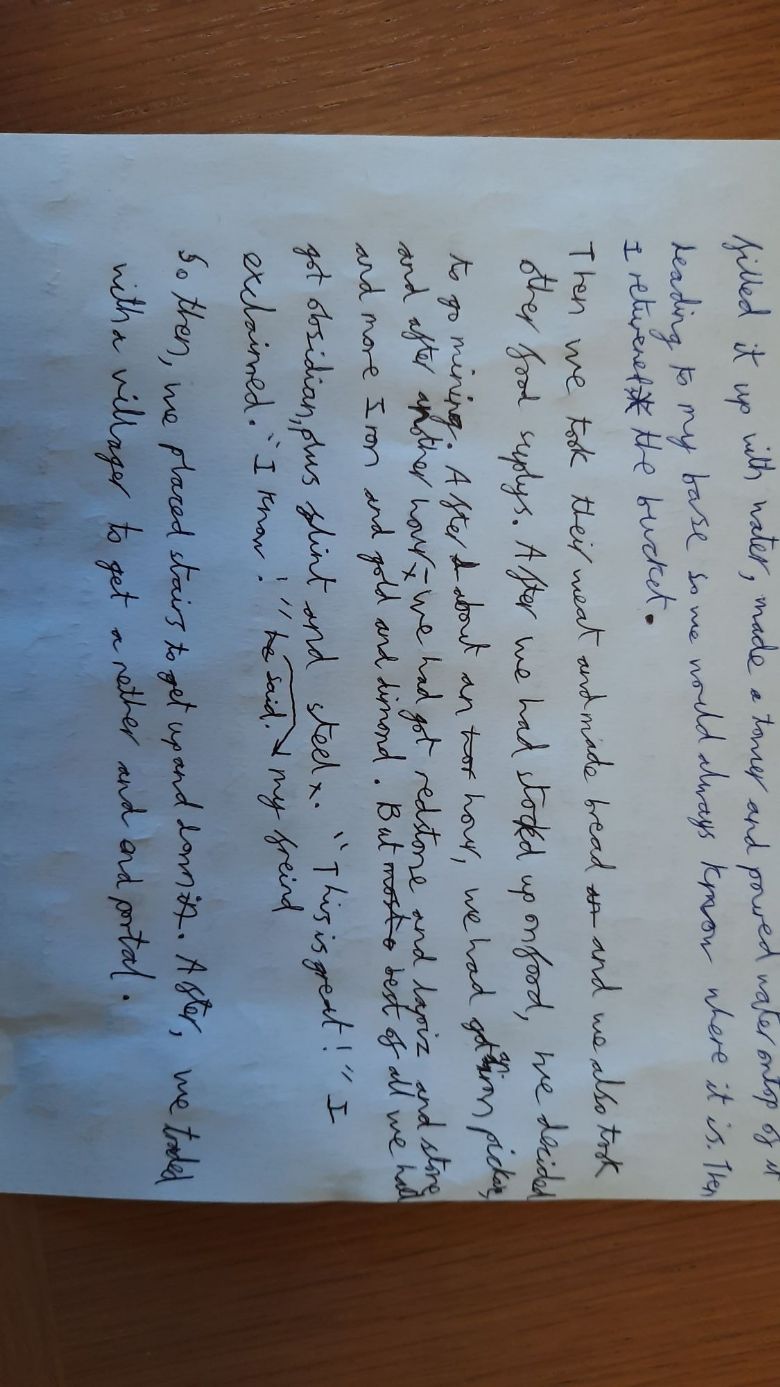 filled it up with water, made a tower and poured water ontop of it
leading to my base so we would always know where it is. Then
I returned the bucket.
Then we took their meat and made bread and we also took
other food suplys. After we had stocked up on food, we decided
to go mining. After about an hour, we had got iron pickax,
and after another hour, we had got redstone and lapiz and stone
and more Iron and gold and dimond. But best of all we had
got obsidian, plus flint and steel. "This is great!" I
exclaimed. "I know!" he said. my freind
So then, we placed stairs to get up and down. After, we traded
with a villager to get a nether and end portal.